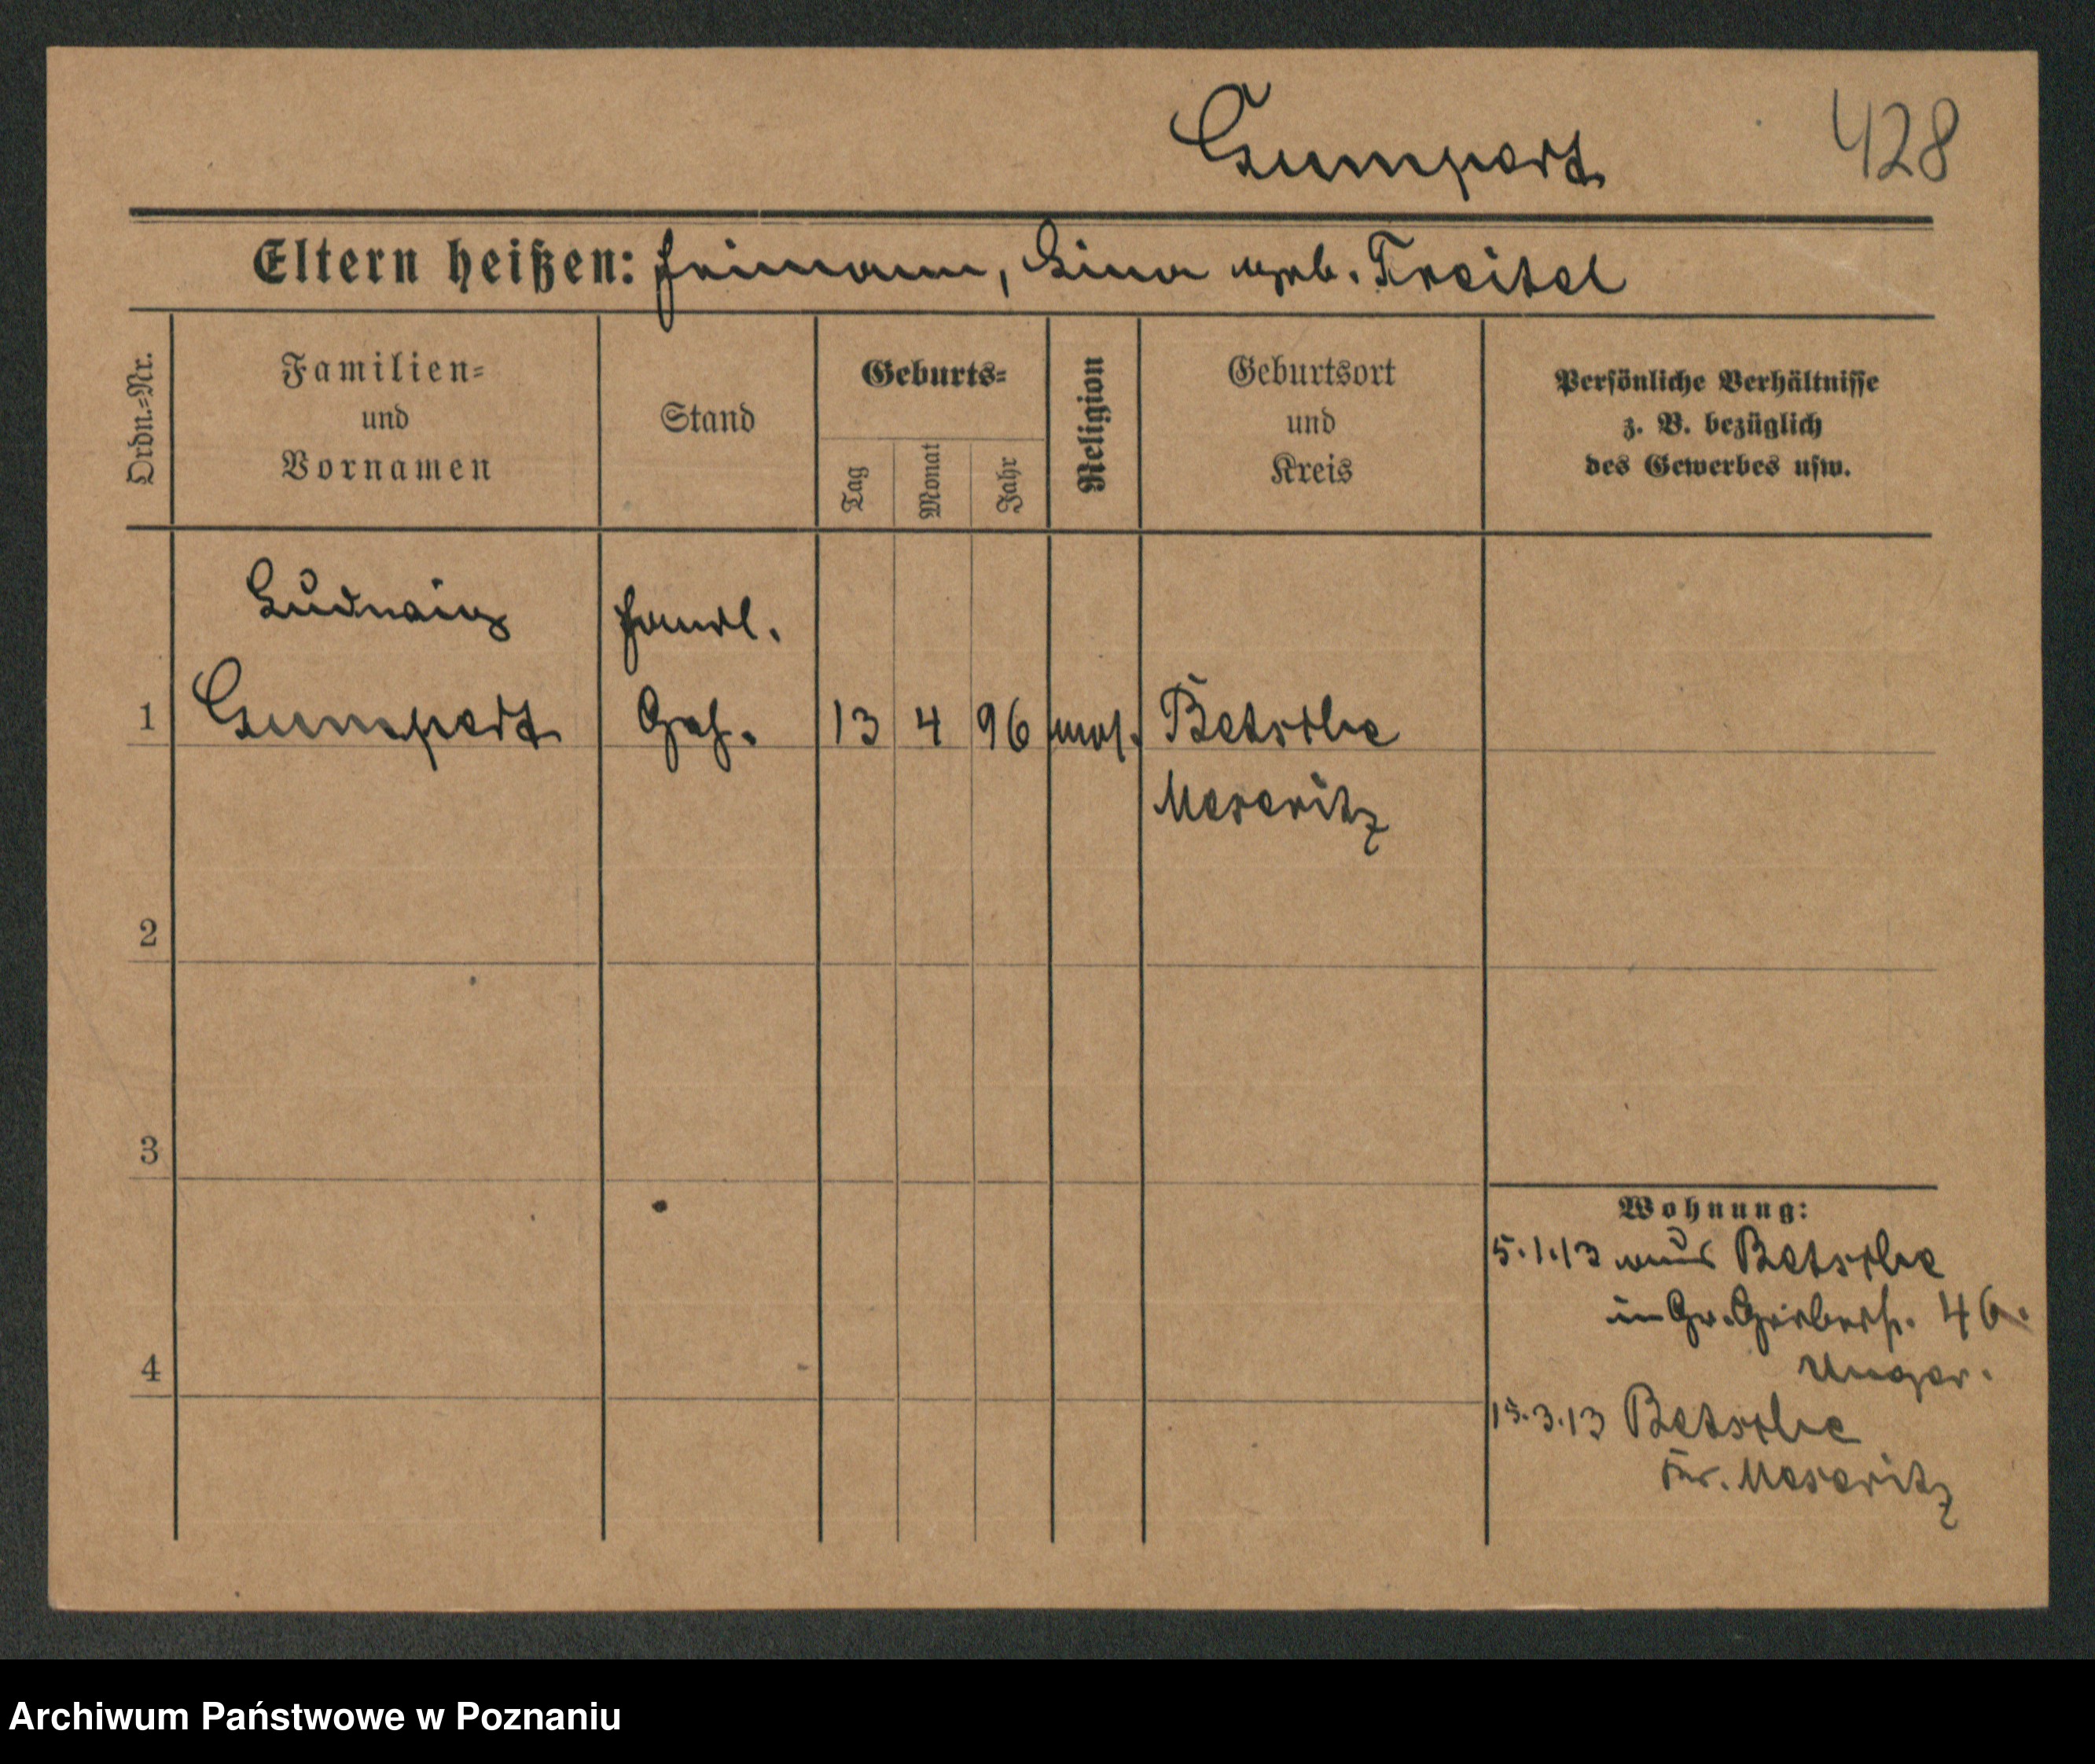 Gumpert 428
Eltern heißen: Heimann, Lina geb. Treitel
Ordn.=Nr.
Familien=
und
Vornamen
Stand
Geburts=
Tag
Monat
Jahr
Religion
Geburtsort
und
Kreis
Persönliche Verhältnisse
z. B. bezüglich
des Gewerbes usw.
Ludwig Handl.
1 Gumpert Geh. 13 4 96 mos. Betsche
Meseritz
2
3
Wohnung:
5.1.13 aus Betsche
in Gr. Gerberstr. 46.
Unger.
4
15.3.13 Betsche
Kr. Meseritz
Archiwum Państwowe w Poznaniu